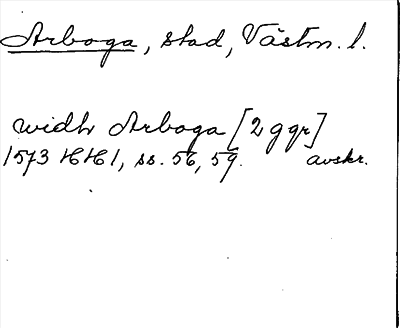 Arboga, stad, Västm. l.
widh Arboga [2 ggr]
1573 HH1, ss. 56, 59. avskr.